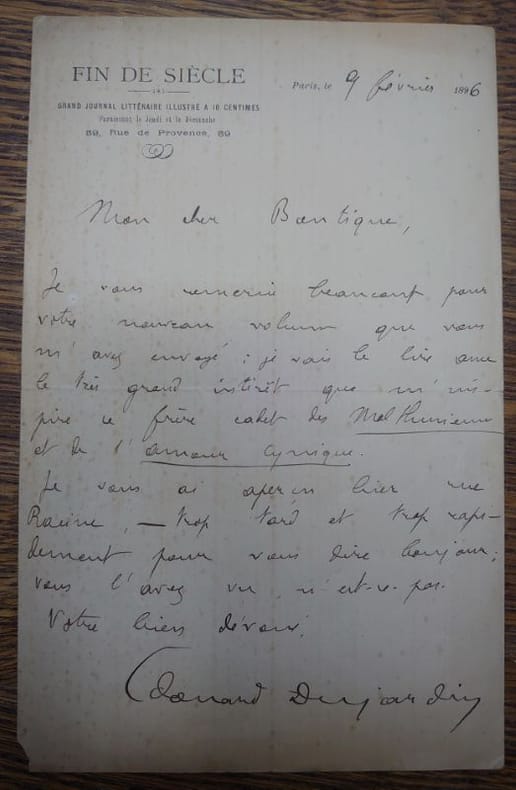 FIN DE SIÈCLE
GRAND JOURNAL LITTÉRAIRE ILLUSTRÉ A 10 CENTIMES
Paraissant le Jeudi et le Dimanche
89, Rue de Provence, 89
Paris, le 9 février 1896
Mon cher
Je vous remercie beaucoup pour
votre nouveau volume que vous
m'avez envoyé : je vais le lire avec
le très grand intérêt que m'ins-
pire ce frère cadet des
et de l'amour cynique.
Je vous ai aperçu hier rue
Racine, — trop tard et trop rapi-
dement pour vous dire bonjour ;
vous l'avez vu n'est-ce pas.
Votre bien dévoué.
Edouard Dujardin